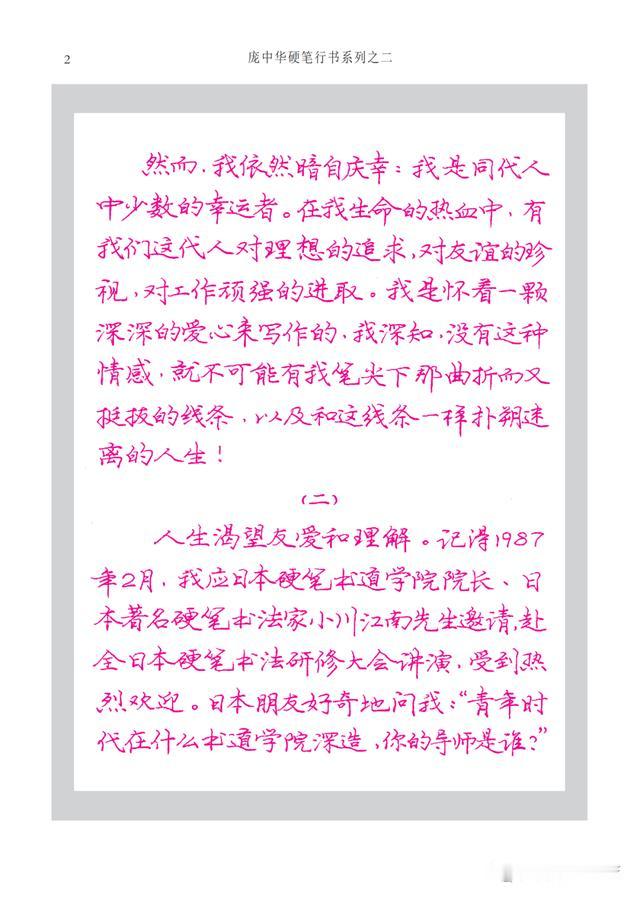 2
庞中华硬笔行书系列之二
然而，我依然暗自庆幸：我是同代人
中少数的幸运者。在我生命的热血中，有
我们这代人对理想的追求，对友谊的珍
视，对工作顽强的进取。我是怀着一颗
深深的爱心来写作的，我深知，没有这种
情感，就不可能有我笔尖下那曲折而又
挺拔的线条，以及和这线条一样扑朔迷
离的人生！
（二）
人生渴望友爱和理解。记得1987
年2月，我应日本硬笔书道学院院长、日
本著名硬笔书法家小川江南先生邀请，赴
全日本硬笔书法研修大会讲演，受到热
烈欢迎。日本朋友好奇地问我：“青年时
代在什么书道学院深造，你的导师是谁？”